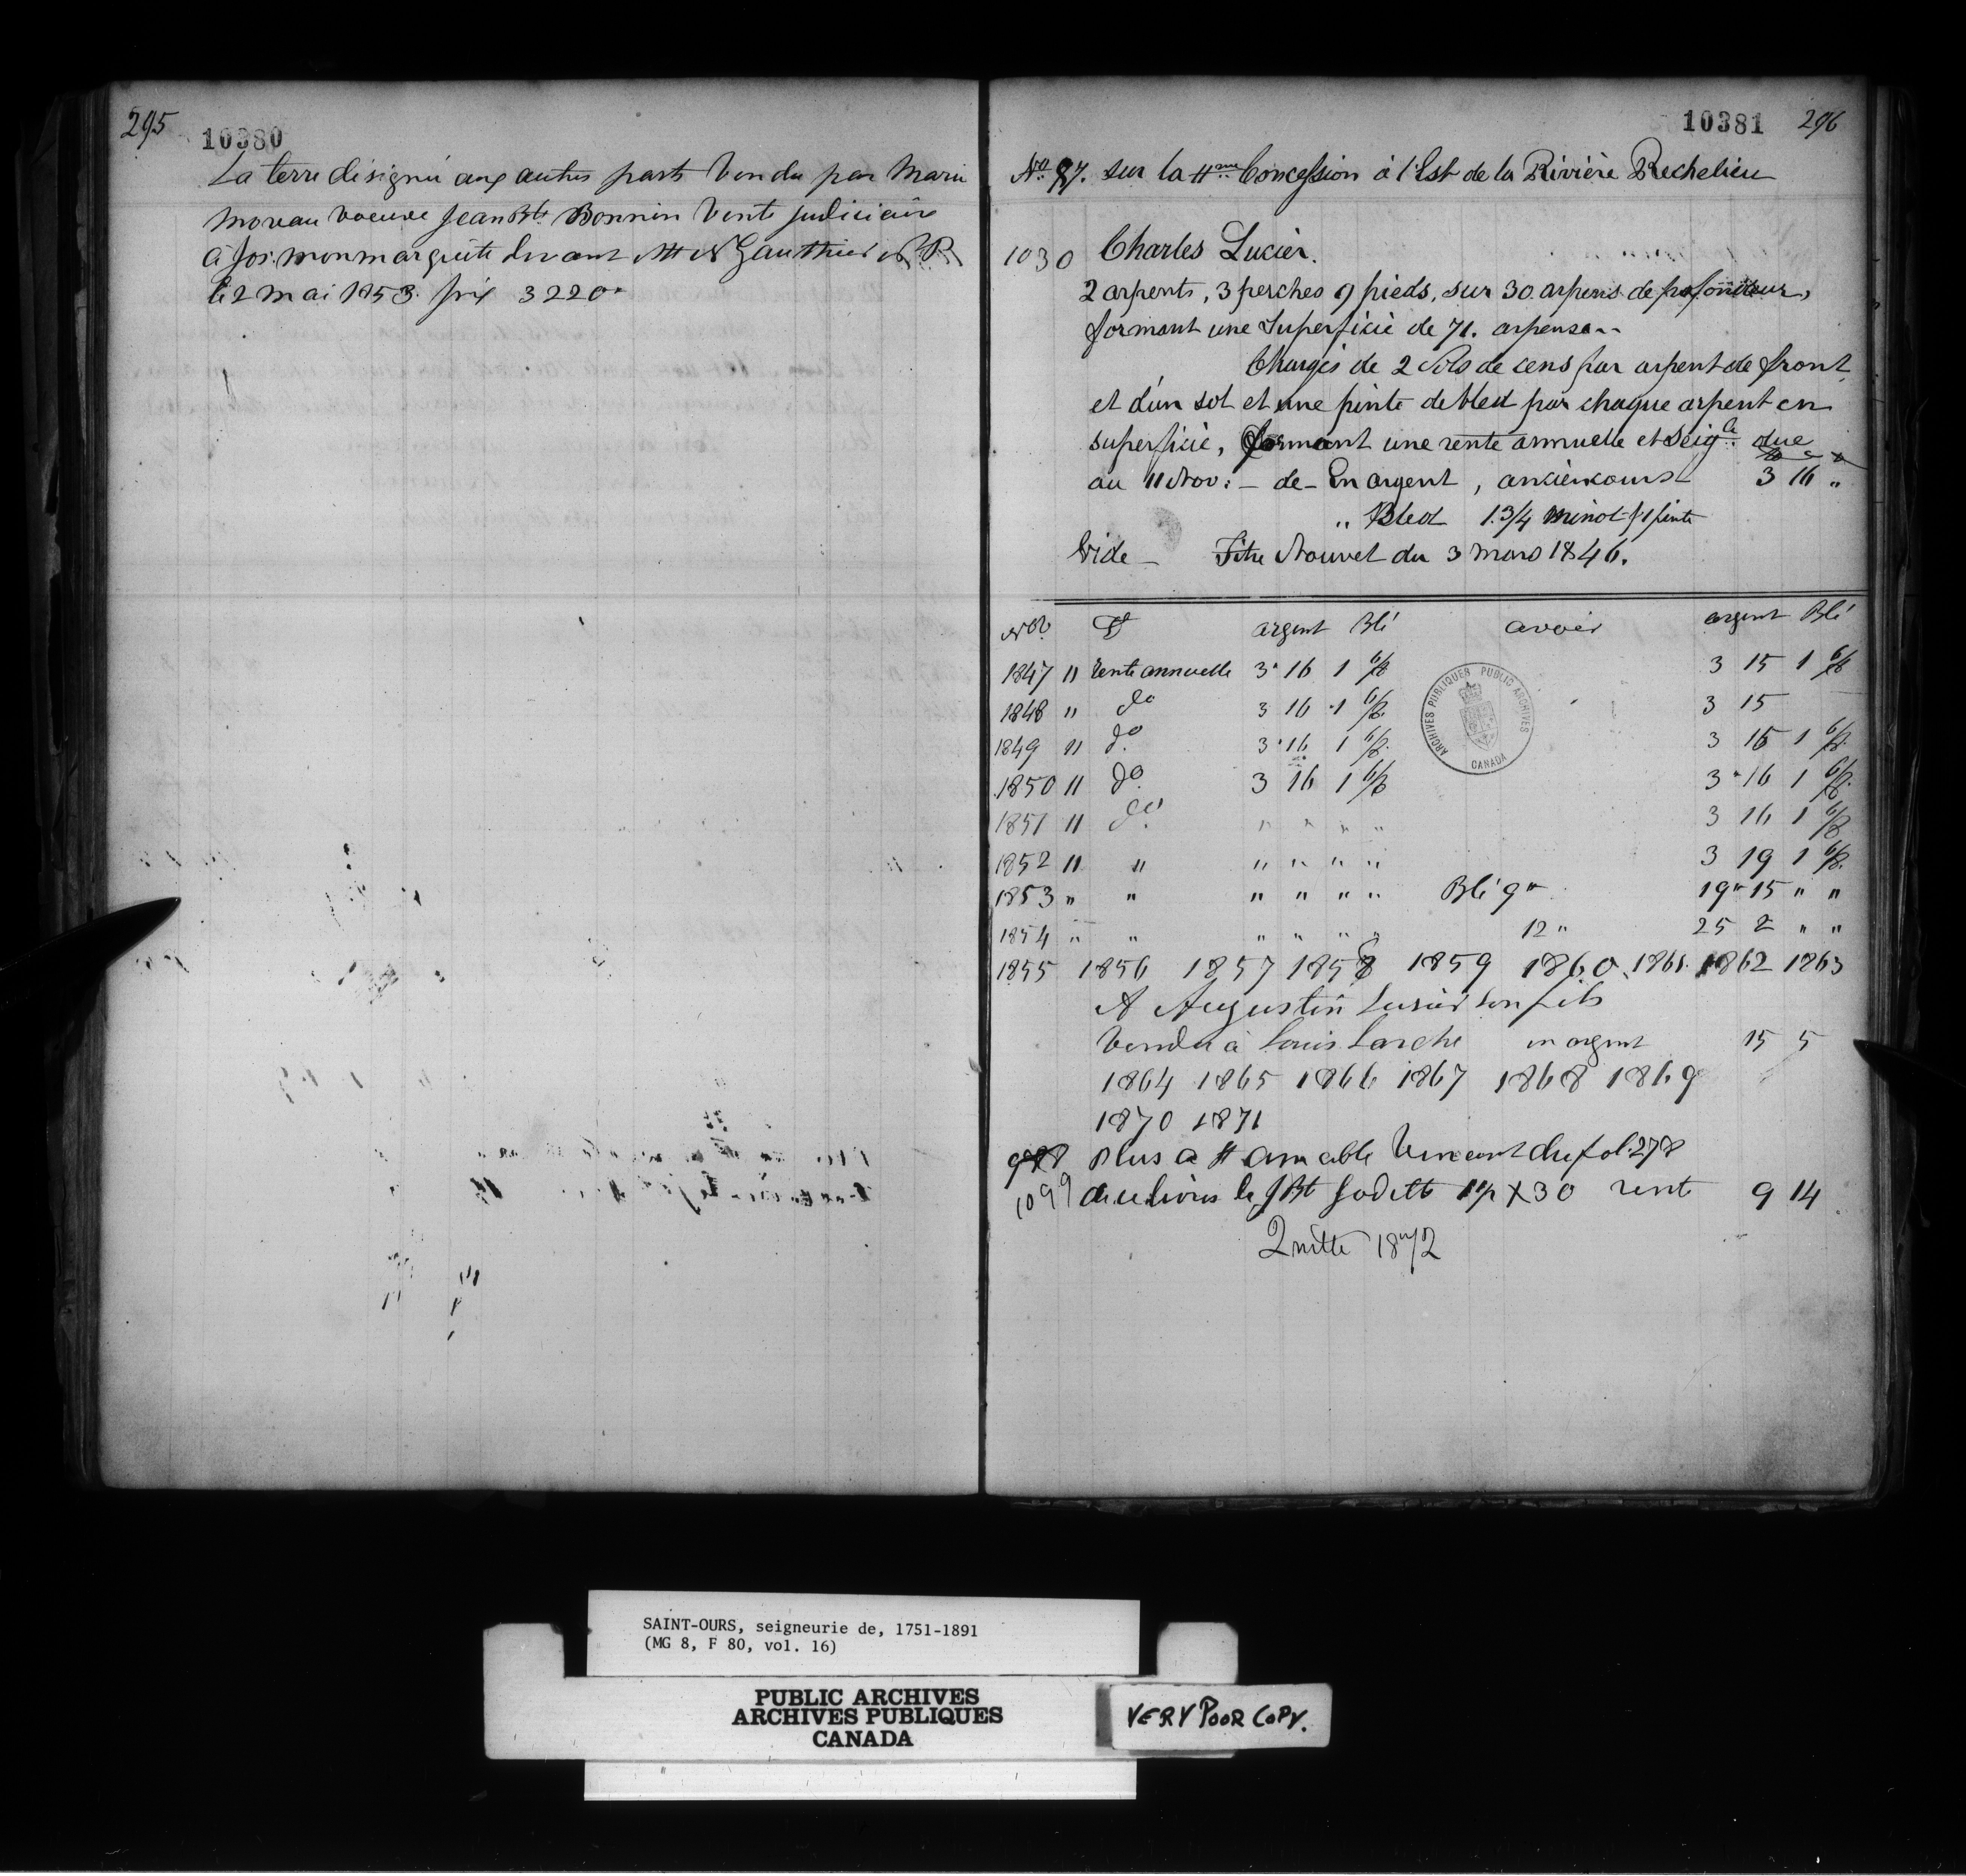 295
10380
La terre désigné aux autres parts vendu par Marie
Moreau voeuve Jean Bte Bonnin vente judiciaire
à Jos. Monmarquette devant Mtt N Gauthier N.P.
le 2 mai 1853. prix 3220"
10381 296
No. 97. sur la 4me Concession à l'Est de la Rivière Rechelieu
1030 Charles Lucier.
2 arpents, 3 perches 9 pieds, sur 30 arpens de profondeur,
formant une Superficie de 71. arpens..
Chargés de 2 Sols de cens par arpent de front
et d'un sol et une pinte de bled par chaque arpent en
superficie, formant une rente annuelle et Seigle due
au 11 Nov: - de - En argent, ancien cours 3 16 "
" Bled 1.3/4 minot & 1 pinte
Vide - Titre Nouvel du 3 mars 1846.
Nov. Dt argent Blé avoir argent Blé
1847 11 Rente annuelle 3" 16 1 6/8 3 15 1 6/8
1848 " do 3 16 1 6/8 3 15
1849 11 do 3 16 1 6/8 3 16 1 6/8
1850 11 do 3 16 1 6/8 3 16 1 6/8
1851 11 do " " " " 3 16 1 6/8
1852 11 " " " " " 3 19 1 6/8
1853 " " " " " " Blé 9" 19" 15 " "
1854 " " " " " " 12" 25 2 " "
1855 1856 1857 1858 1859 1860 1861 1862 1863
A Augustin Lusier son fils
Vendu à Louis Larche en argent 15 5
1864 1865 1866 1867 1868 1869
1870 1871
plus a # amable Vincent du fol 278
1099 de ce livre le J Bt Godette 1 1/2 X 30 rente 9 14
Quitte 1872
ARCHIVES PUBLIQUES PUBLIC ARCHIVES
CANADA
SAINT-OURS, seigneurie de, 1751-1891
(MG 8, F 80, vol. 16)
PUBLIC ARCHIVES
ARCHIVES PUBLIQUES
CANADA
VERY POOR COPY.